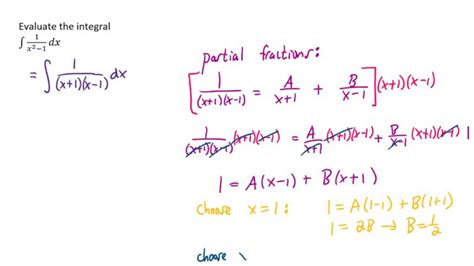 Evaluate the integral
∫ 1/(x²−1) dx
= ∫ 1/((x+1)(x−1)) dx
partial fractions:
[ 1/((x+1)(x−1)) = A/(x+1) + B/(x−1) ] (x+1)(x−1)
1/((x+1)(x−1)) (x+1)(x−1) = A/(x+1) (x+1)(x−1) + B/(x−1) (x+1)(x−1)
1 = A(x−1) + B(x+1)
Choose x=1: 1 = A(1−1) + B(1+1)
1 = 2B → B = 1/2
choose